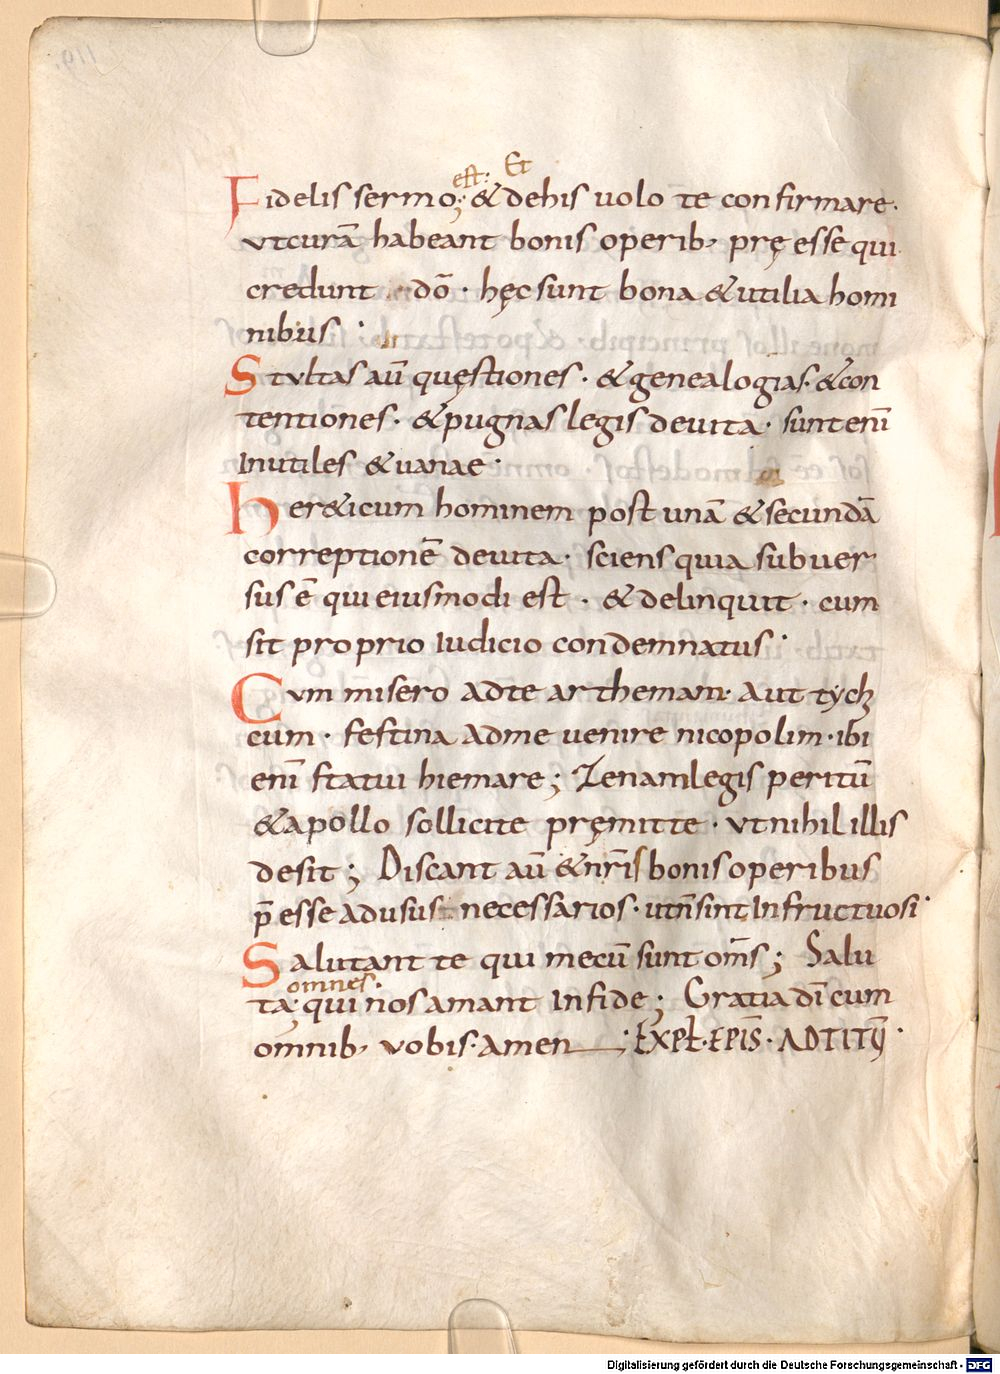 est: Et
Fidelis sermo; & dehis uolo te confirmare.
vtcurā habeant bonis operib, pręesse qui
credunt dō · hęcsunt bona &utilia homi
nibus :
Stultas aū quęstiones · &genealogias · &con
tentiones · &pugnas legis deuita · sunt enī
Inutiles &uanae ·
her&icum hominem post unā &secundā
correptionē deuita · sciens quia subuer
sus ē qui eiusmodi est · & delinquit · cum
sit proprio Iudicio condemnatus ·
Cum misero adte arthemam · Aut tych
cum · festina adme uenire nicopolim · ibi
enī statui hiemare ; Zenam legis peritū
&apollo sollicite pręmitte · vtnihil illis
desit ; Discant aū &nr̄is bonis operibus
p̄esse adusus necessarios · utn̄sint Infructuosi ·
Salutant te qui mecū sunt om̄s ; Salu
omnes.
ta: qui nos amant Infide ; Gratia dī cum
omnib, vobis · Amen : EXPŁ · EPIS̄ · ADTITŪ ·
119.
Digitalisierung gefördert durch die Deutsche Forschungsgemeinschaft - DFG